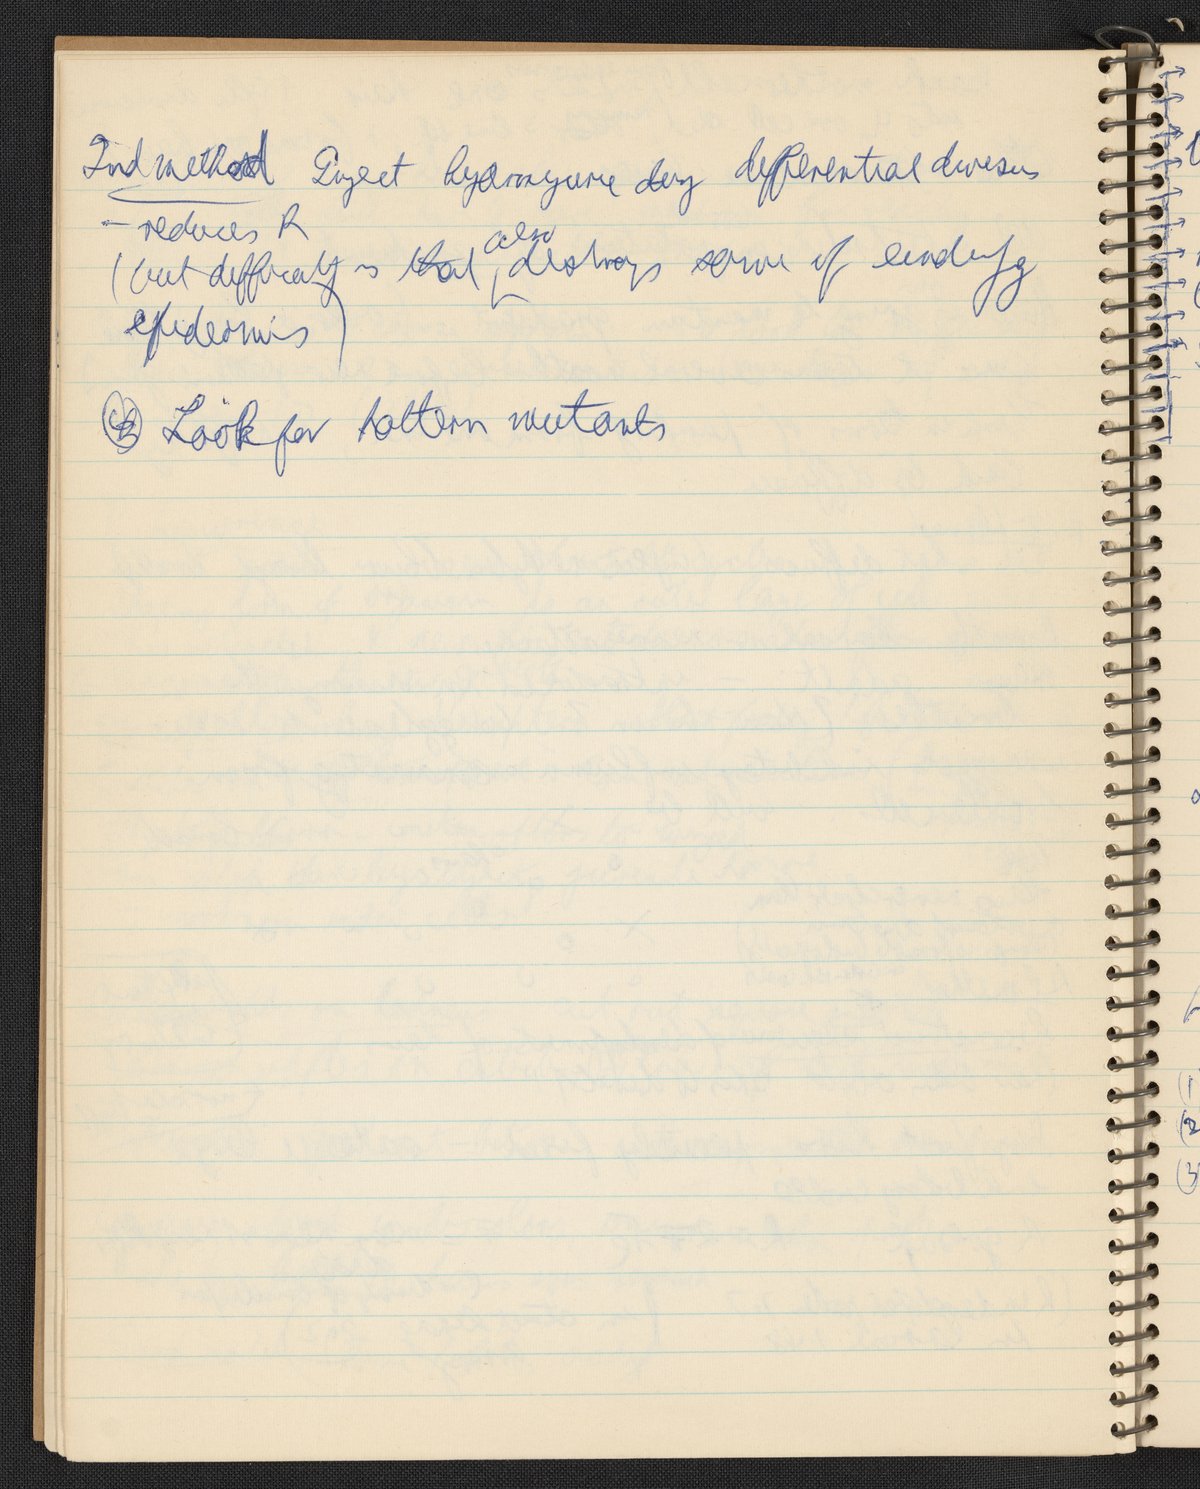 2nd method Inject during differential division
– reduces R
(but difficulty is that also destroys some of
epidermis)
Look for pattern mutants
(1
(2
(3